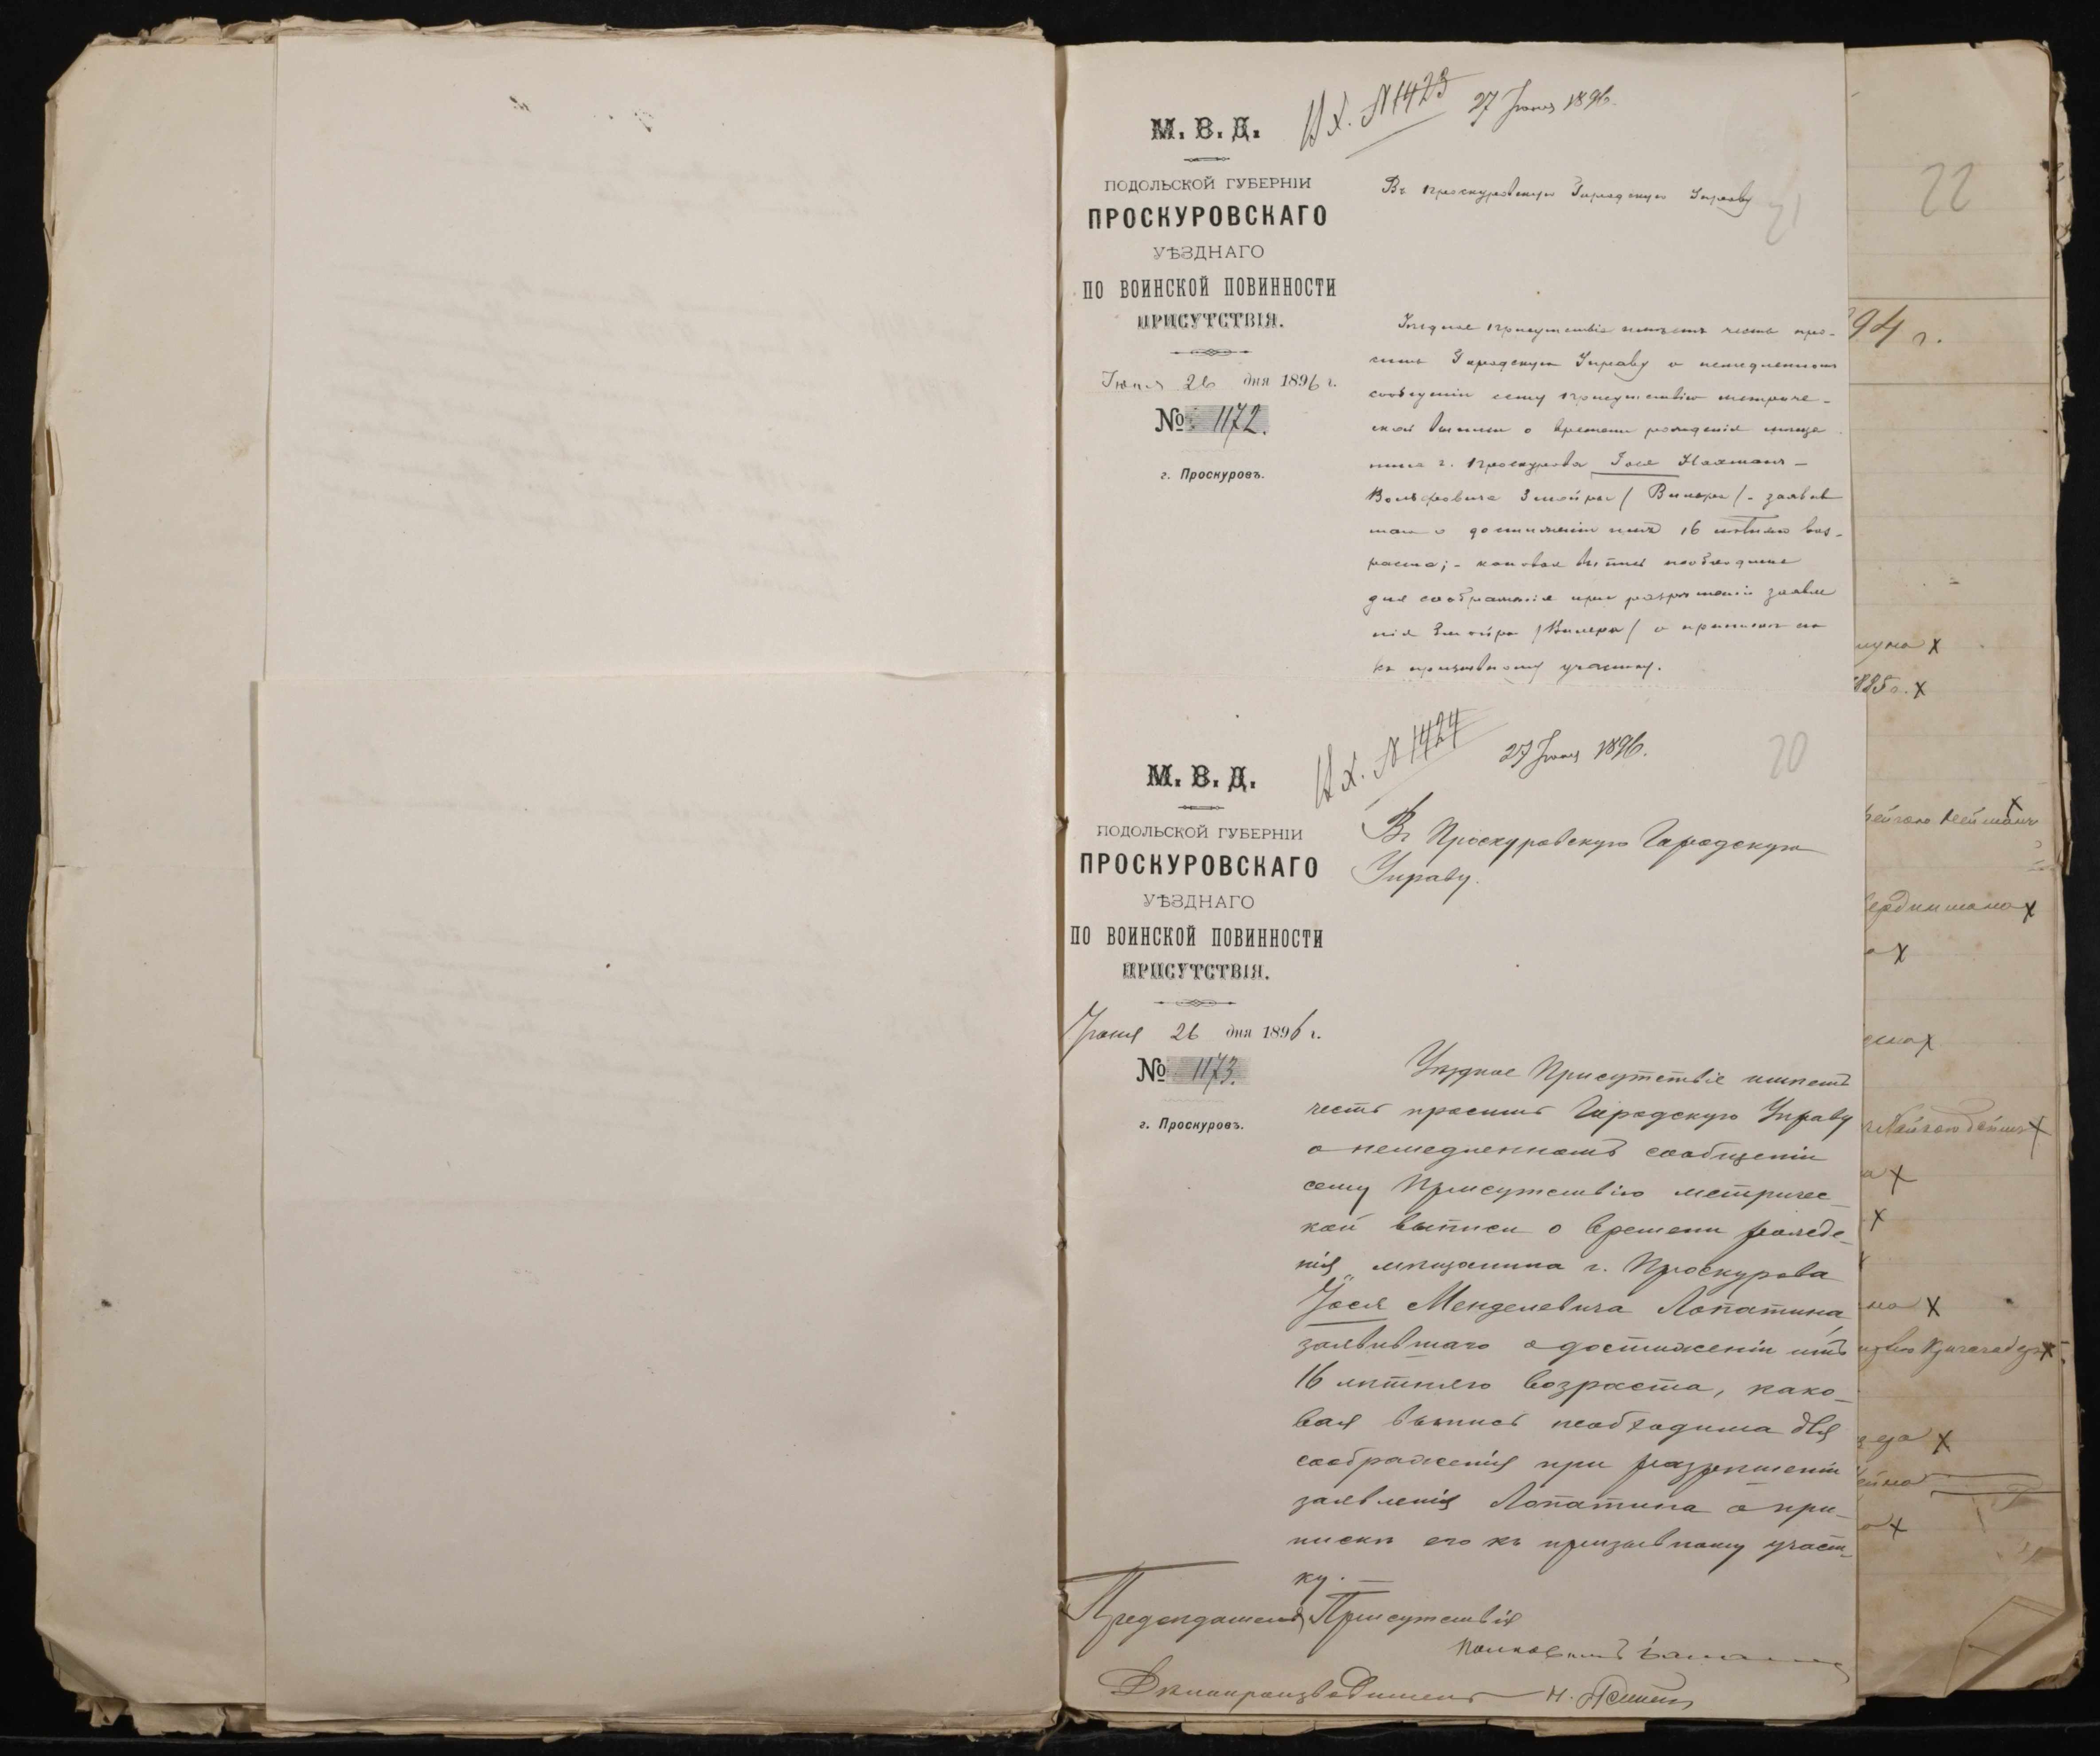 Вх. № 1423 27 Іюня 1896.
М. В. Д.
ПОДОЛЬСКОЙ ГУБЕРНІИ
ПРОСКУРОВСКАГО
УѢЗДНАГО
ПО ВОИНСКОЙ ПОВИННОСТИ
ПРИСУТСТВІЯ.
Іюня 26 дня 1896 г.
№ 1172.
г. Проскуровъ.
Въ Проскуровскую Городскую Управу
21
Уѣздное Присутствіе имѣетъ честь про-
сить Городскую Управу о немедленномъ
сообщеніи сему Присутствію метриче-
ской выписи о времени рожденія мѣща
нина г. Проскурова Іося Нахманъ-
Вольфовича Змойры (Винера) - заявив
шаго о достиженіи имъ 16 лѣтняго воз-
раста; - каковая выпись необходима
для соображенія при разрѣшеніи заявле
нія Змойры (Винера) о припискѣ его
къ призывному участку.
Вх. № 1424 27 Іюня 1896.
20
М. В. Д.
ПОДОЛЬСКОЙ ГУБЕРНІИ
ПРОСКУРОВСКАГО
УѢЗДНАГО
ПО ВОИНСКОЙ ПОВИННОСТИ
ПРИСУТСТВІЯ.
Іюня 26 дня 1896 г.
№ 1173.
г. Проскуровъ.
Въ Проскуровскую Городскую
Управу.
Уѣздное Присутствіе имѣетъ
честь просить Городскую Управу
о немедленномъ сообщеніи
сему Присутствію метричес-
кой выписи о времени рожде-
нія мѣщанина г. Проскурова
Іося Менделевича Лопатина,
заявившаго о достиженіи имъ
16 лѣтняго возраста, како-
вая выпись необходима для
соображенія при разрѣшеніи
заявленія Лопатина о при-
пискѣ его къ призывному участ-
ку. —
Предсѣдатель Присутствія
Полковникъ
Дѣлопроизводитель Н.
22
94 г.
1885 г. х